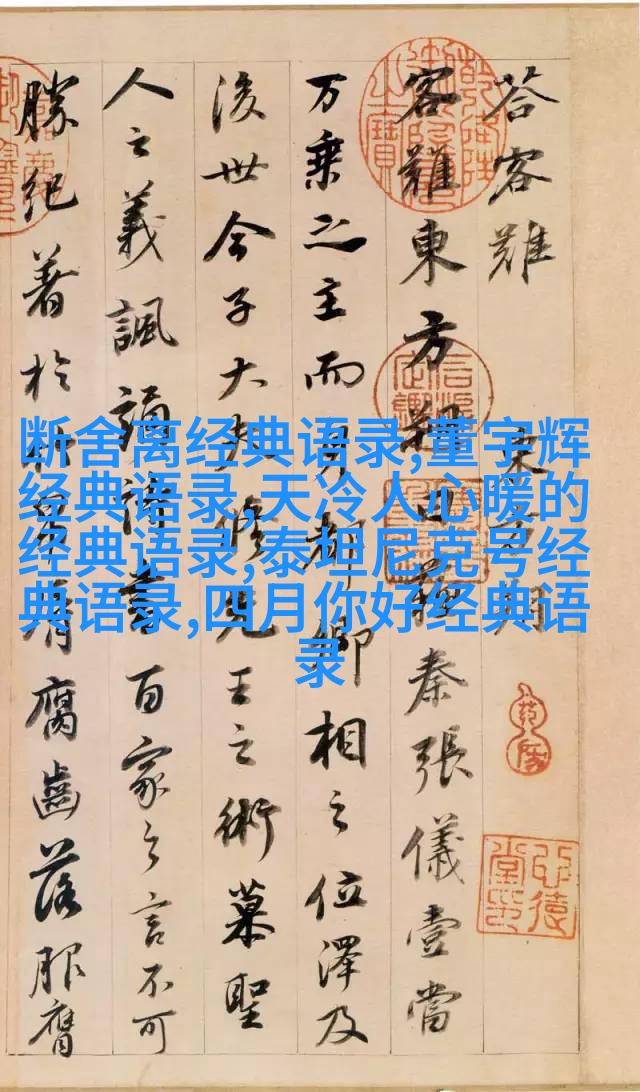 荅客難 東方朔
客難東方朔曰蘇秦張儀壹當
万乘之主而身都卿相之位澤及
後世今子大夫修先王之術慕聖
人之義諷誦詩書百家之言不可
勝紀著於竹帛脣腐齒落服膺
断舍离经典语录,董宇辉
经典语录,天冷人心暖的
经典语录,泰坦尼克号经
典语录,四月你好经典语
录